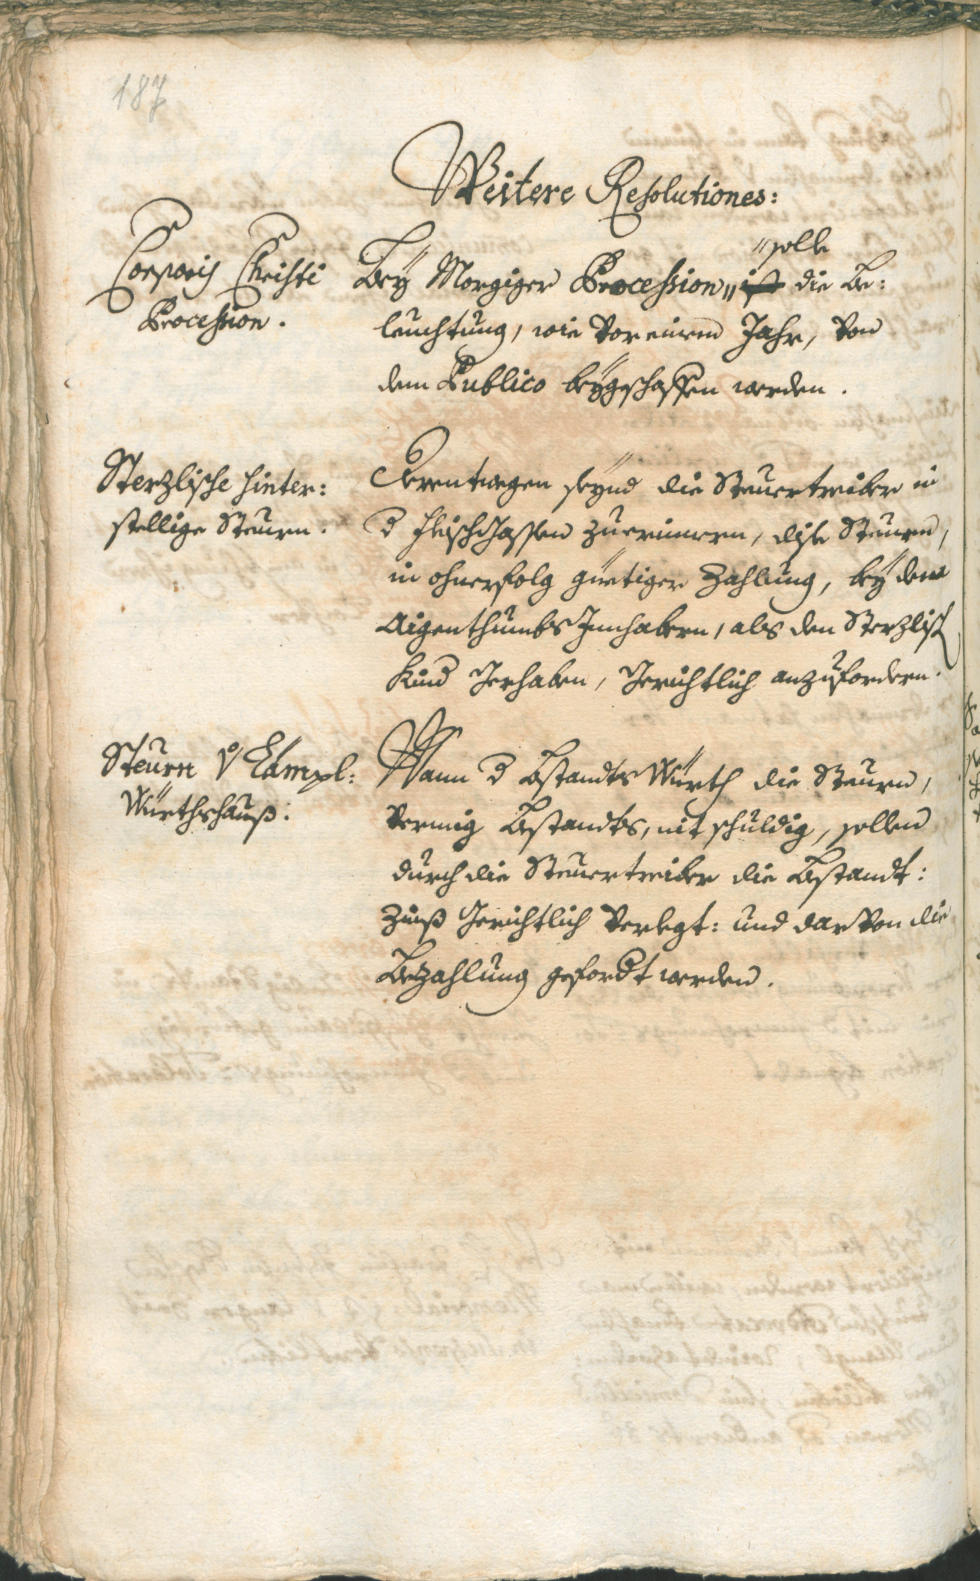 187
Weitere Resolutiones:
Corporis Christi
Procession.
solle
Beÿ Morgiger Procession ist die Be:
leuchtung, wie vor einem Jahr, von
dem Publico beÿgeschaffen werden.
Sterzlische hinter:
stellige Steurn.
Derentwegen seÿnd die Steuertreiber in
d zuerinnern, dise Steuren,
in ohnerfolg güetiger Zahlung, beÿ dem
Aigenthumbs Innhabern, als den Sterzlisch
Kind Gerhaben, Gerichtlich anzufordern.
Steurn v Lämpl:
Würthshauß:
Wann d Bstandts Würth die Steuren,
vermig Bstandts, nit schuldig, sollen
durch die Steuertreiber die Bstandt:
Zinß Gerichtlich verlegt: und darvon die
Bezahlung gefordt werden.